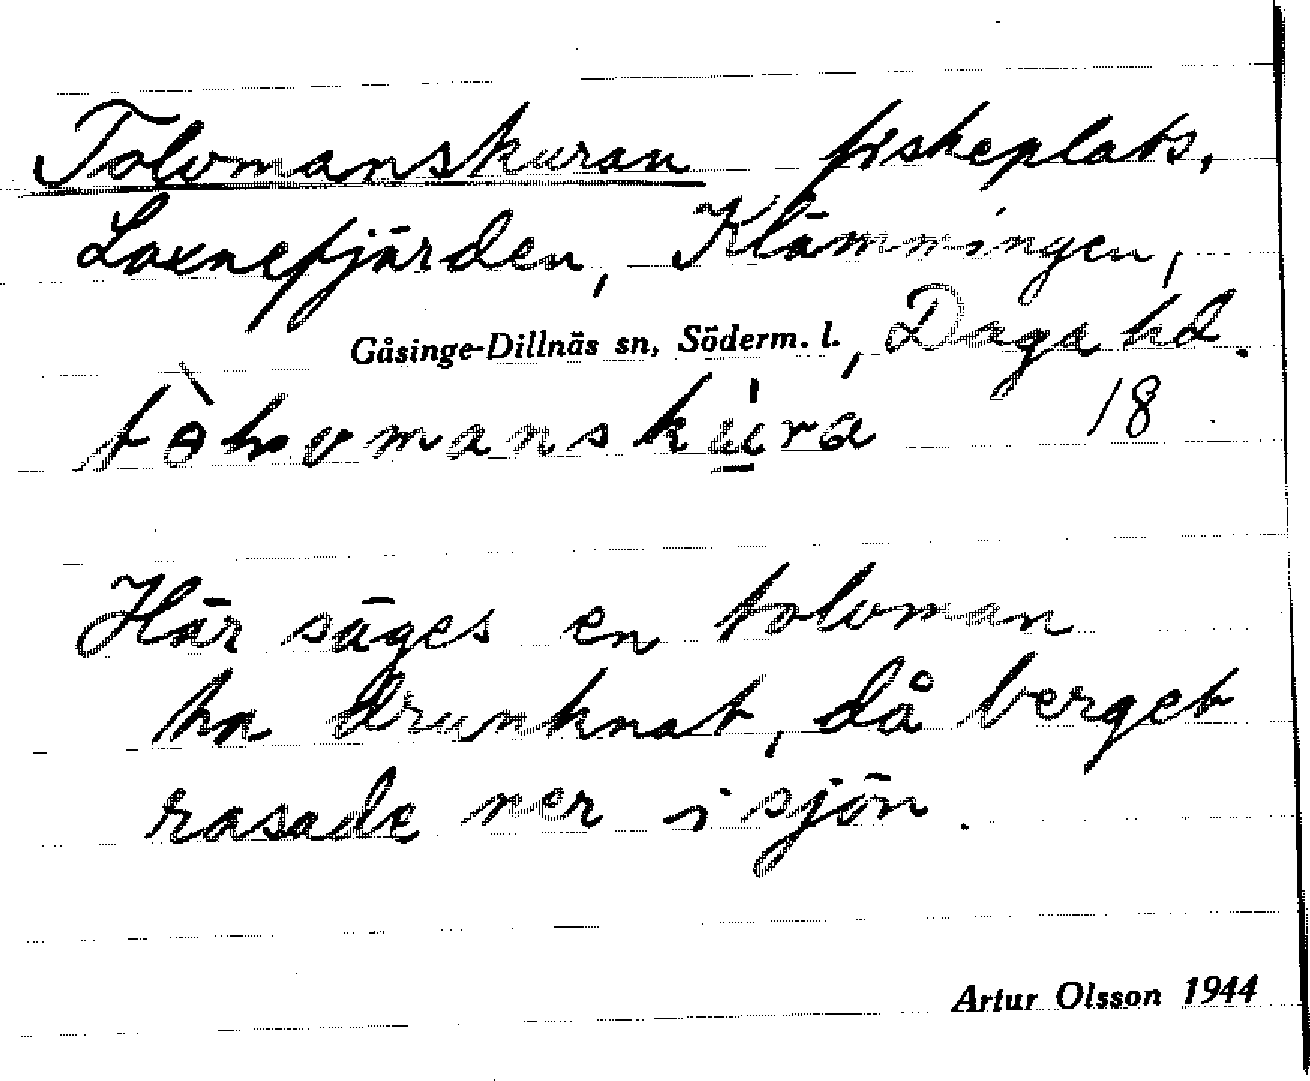 Tolvmanskuran fiskeplats,
Laxnefjärden, Klämmingen,
Gåsinge-Dillnäs sn, Söderm. l., Daga hd.
18
Här säges en tolvman
ha drunknat, då berget
rasade ner i sjön.
Artur Olsson 1944